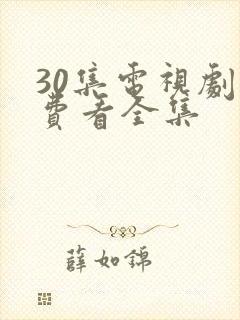 30集电视劇
費看全集
薛如錦